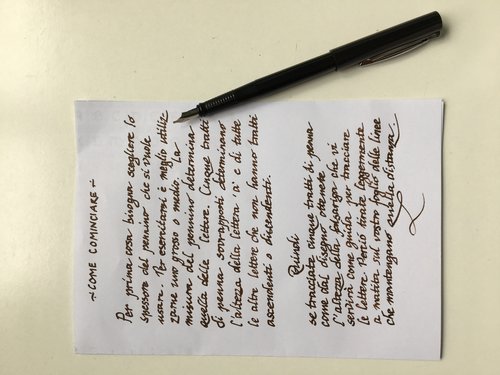 ~ COME COMINCIARE ~
Per prima cosa bisogna scegliere lo
spessore del pennino che si vuole
usare. Per esercitarsi è meglio utiliz-
zarne uno grosso o medio. La
misura del pennino determina
quella delle lettere. Cinque tratti
di penna sovrapposti determinano
l'altezza della lettera 'a' e di tutte
le altre lettere che non hanno tratti
ascendenti o discendenti.
Quindi
se tracciate cinque tratti di penna
come dal disegno ottenete
l'altezza della falsariga che vi
servirà come guida per tracciare
le lettere. Perciò tirate leggermente
a matita sul vostro foglio delle linee
che mantengano quella distanza.